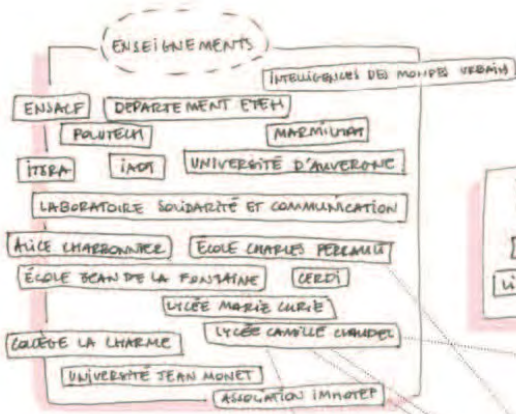 ENSEIGNEMENTS
INTELLIGENCES DES MONDES URBAIN
ENSACF DEPARTEMENT ETEH
POLYTECH MARMILHAT
ITSRA IADT UNIVERSITÉ D'AUVERGNE
LABORATOIRE SOLIDARITÉ ET COMMUNICATION
ALICE CHARBONNIER ÉCOLE CHARLES PERRAULT
ÉCOLE JEAN DE LA FONTAINE CERDI
LYCÉE MARIE CURIE
LYCÉE CAMILLE CLAUDEL
COLLÈGE LA CHARME
UNIVERSITÉ JEAN MONET
ASSOCIATION IMHOTEP